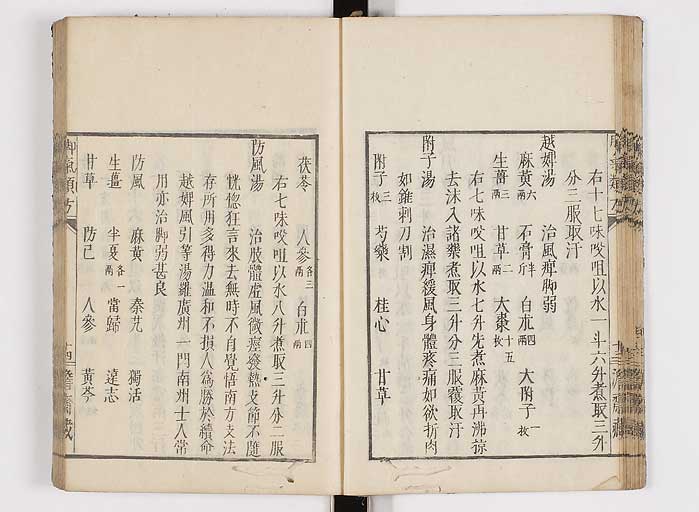 右十七味㕮咀以水一斗六升煮取三升
分三服取汗
越婢湯　治風痺脚弱
麻黄六兩　石膏半斤　白朮四兩　大附子一枚
生薑三兩　甘草二兩　大棗十五枚
右七味㕮咀以水七升先煮麻黄再沸掠
去沫入諸藥煮取三升分三服覆取汗
附子湯　治濕痺緩風身體疼痛如欲折肉
如錐刺刀割
附子三枚　芍藥　桂心　甘草
茯苓　人參各三兩　白朮四兩
右七味㕮咀以水八升煮取三升分二服
防風湯　治肢體虛風微痙發熱支節不隨
恍惚狂言來去無時不自覺悟南方支法
存所用多得力溫和不損人為勝於續命
越婢風引等湯羅廣州一門南州士人常
用亦治脚弱甚良
防風　麻黄　秦艽　獨活
生薑　半夏各一兩　當歸　遠志
甘草　防己　人參　黄芩
脚氣類方
十四　濟齋藏